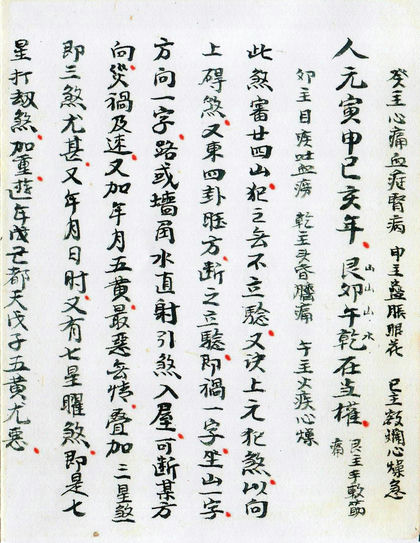 癸主心痛血症腎病 申主蠱脹眼花 巳主殺爛心燥急
人元寅申巳亥年 艮卯午乾在当權 艮主手軟節痛
山山山水
卯主目疾吐血痨 乾主头昏臍痛 午主火疾心燥
此煞審廿四山犯之無不立驗又訣上元犯煞以向
上碍煞又東四卦旺方断之立驗即禍一字坐山一字
方向一字路或墙角水直射引煞入屋可断某方
向災禍及速又加年月五黄最惡無情叠加三星煞
即三煞尤甚又年月日时又有七星曜煞即是七
星打劫煞加重逰年戊己都天戊子五黄尤惡